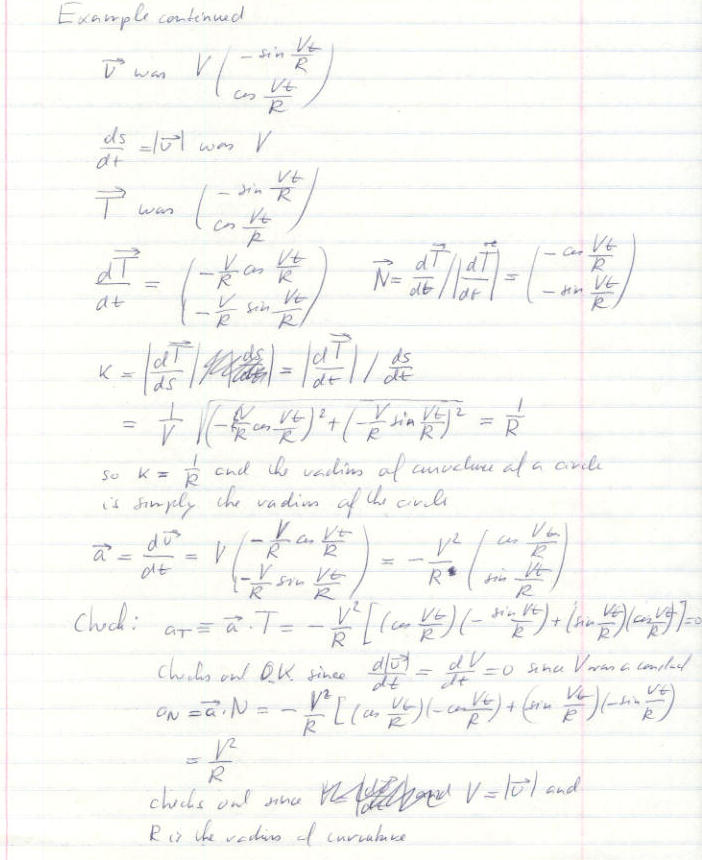 Example continued
v⃗ was V ( -sin Vt/R
cos Vt/R )
ds/dt = |v⃗| was V
T⃗ was ( -sin Vt/R
cos Vt/R )
dT⃗/dt = ( -V/R cos Vt/R
-V/R sin Vt/R ) N⃗ = dT⃗/dt / |dT⃗/dt| = ( -cos Vt/R
-sin Vt/R )
K = |dT⃗/ds| = |dT⃗/dt| / ds/dt
= 1/V √((-V/R cos Vt/R)² + (-V/R sin Vt/R)²) = 1/R
so K = 1/R and the radius of curvature of a circle
is simply the radius of the circle
a⃗ = dv⃗/dt = V ( -V/R cos Vt/R
-V/R sin Vt/R ) = -V²/R ( cos Vt/R
sin Vt/R )
Check: a_T = a⃗ · T = -V²/R [(cos Vt/R)(-sin Vt/R) + (sin Vt/R)(cos Vt/R)] = 0
checks out O.K. since d|v⃗|/dt = dV/dt = 0 since V was a constant
a_N = a⃗ · N = -V²/R [(cos Vt/R)(-cos Vt/R) + (sin Vt/R)(-sin Vt/R)
= V²/R
checks out since V = |v⃗| and
R is the radius of curvature